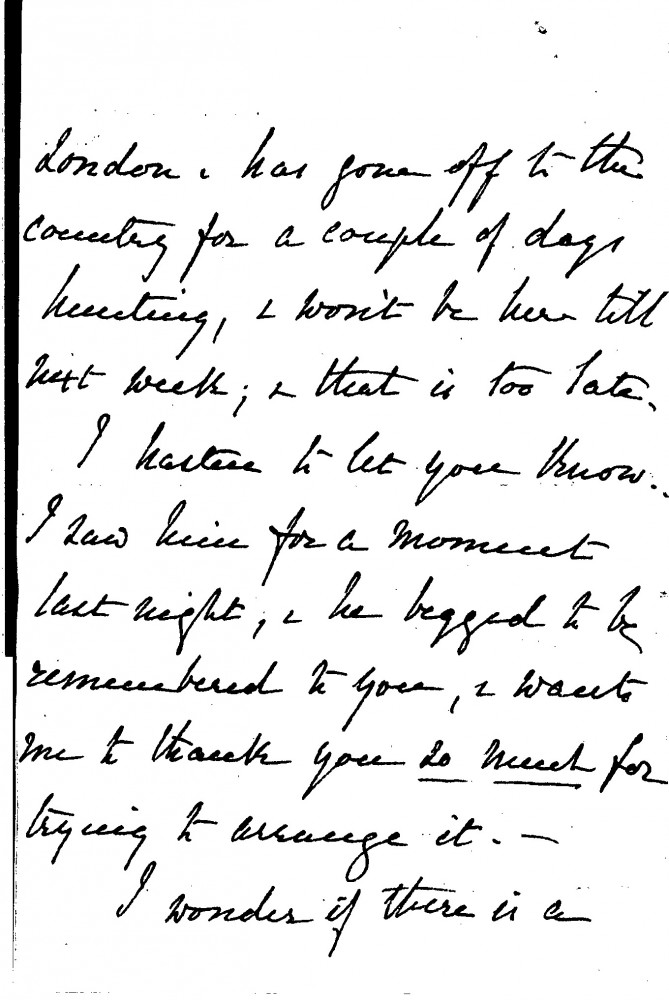 London & has gone off to the
country for a couple of days
hunting, & won't be here till
next week; & that is too late.
I hasten to let you know..
I saw him for a moment
last night, & he begged to be
remembered to you, & wants
me to thank you so much for
trying to arrange it. —
I wonder if there is a